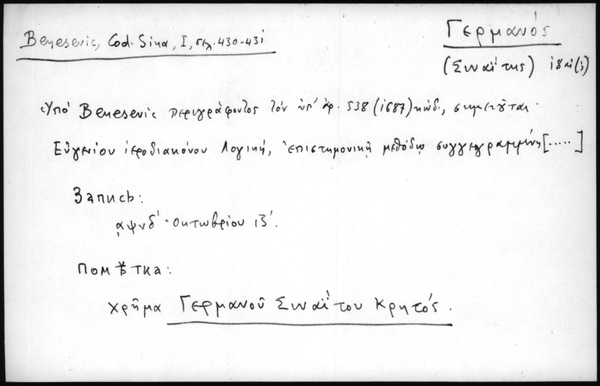 Benesevic, Cod. Sina, I, σελ. 430-431
Γερμανός
(Σιναΐτης) 18 αἰ(;)
Ὑπό Benesevic περιγράφοντος τόν ὑπ' ἀρ. 538 (1687) κώδ., σημειοῦται·
Εὐγενίου ἱεροδιακόνου λογική, ἐπιστημονικῇ μεθόδῳ συγγεγραμμένη [.....]
Запись:
αψνδ´ · Οκτωβρίου ιβ´.
Помѣтка:
χρῆμα Γερμανοῦ Σιναΐτου Κρητός.